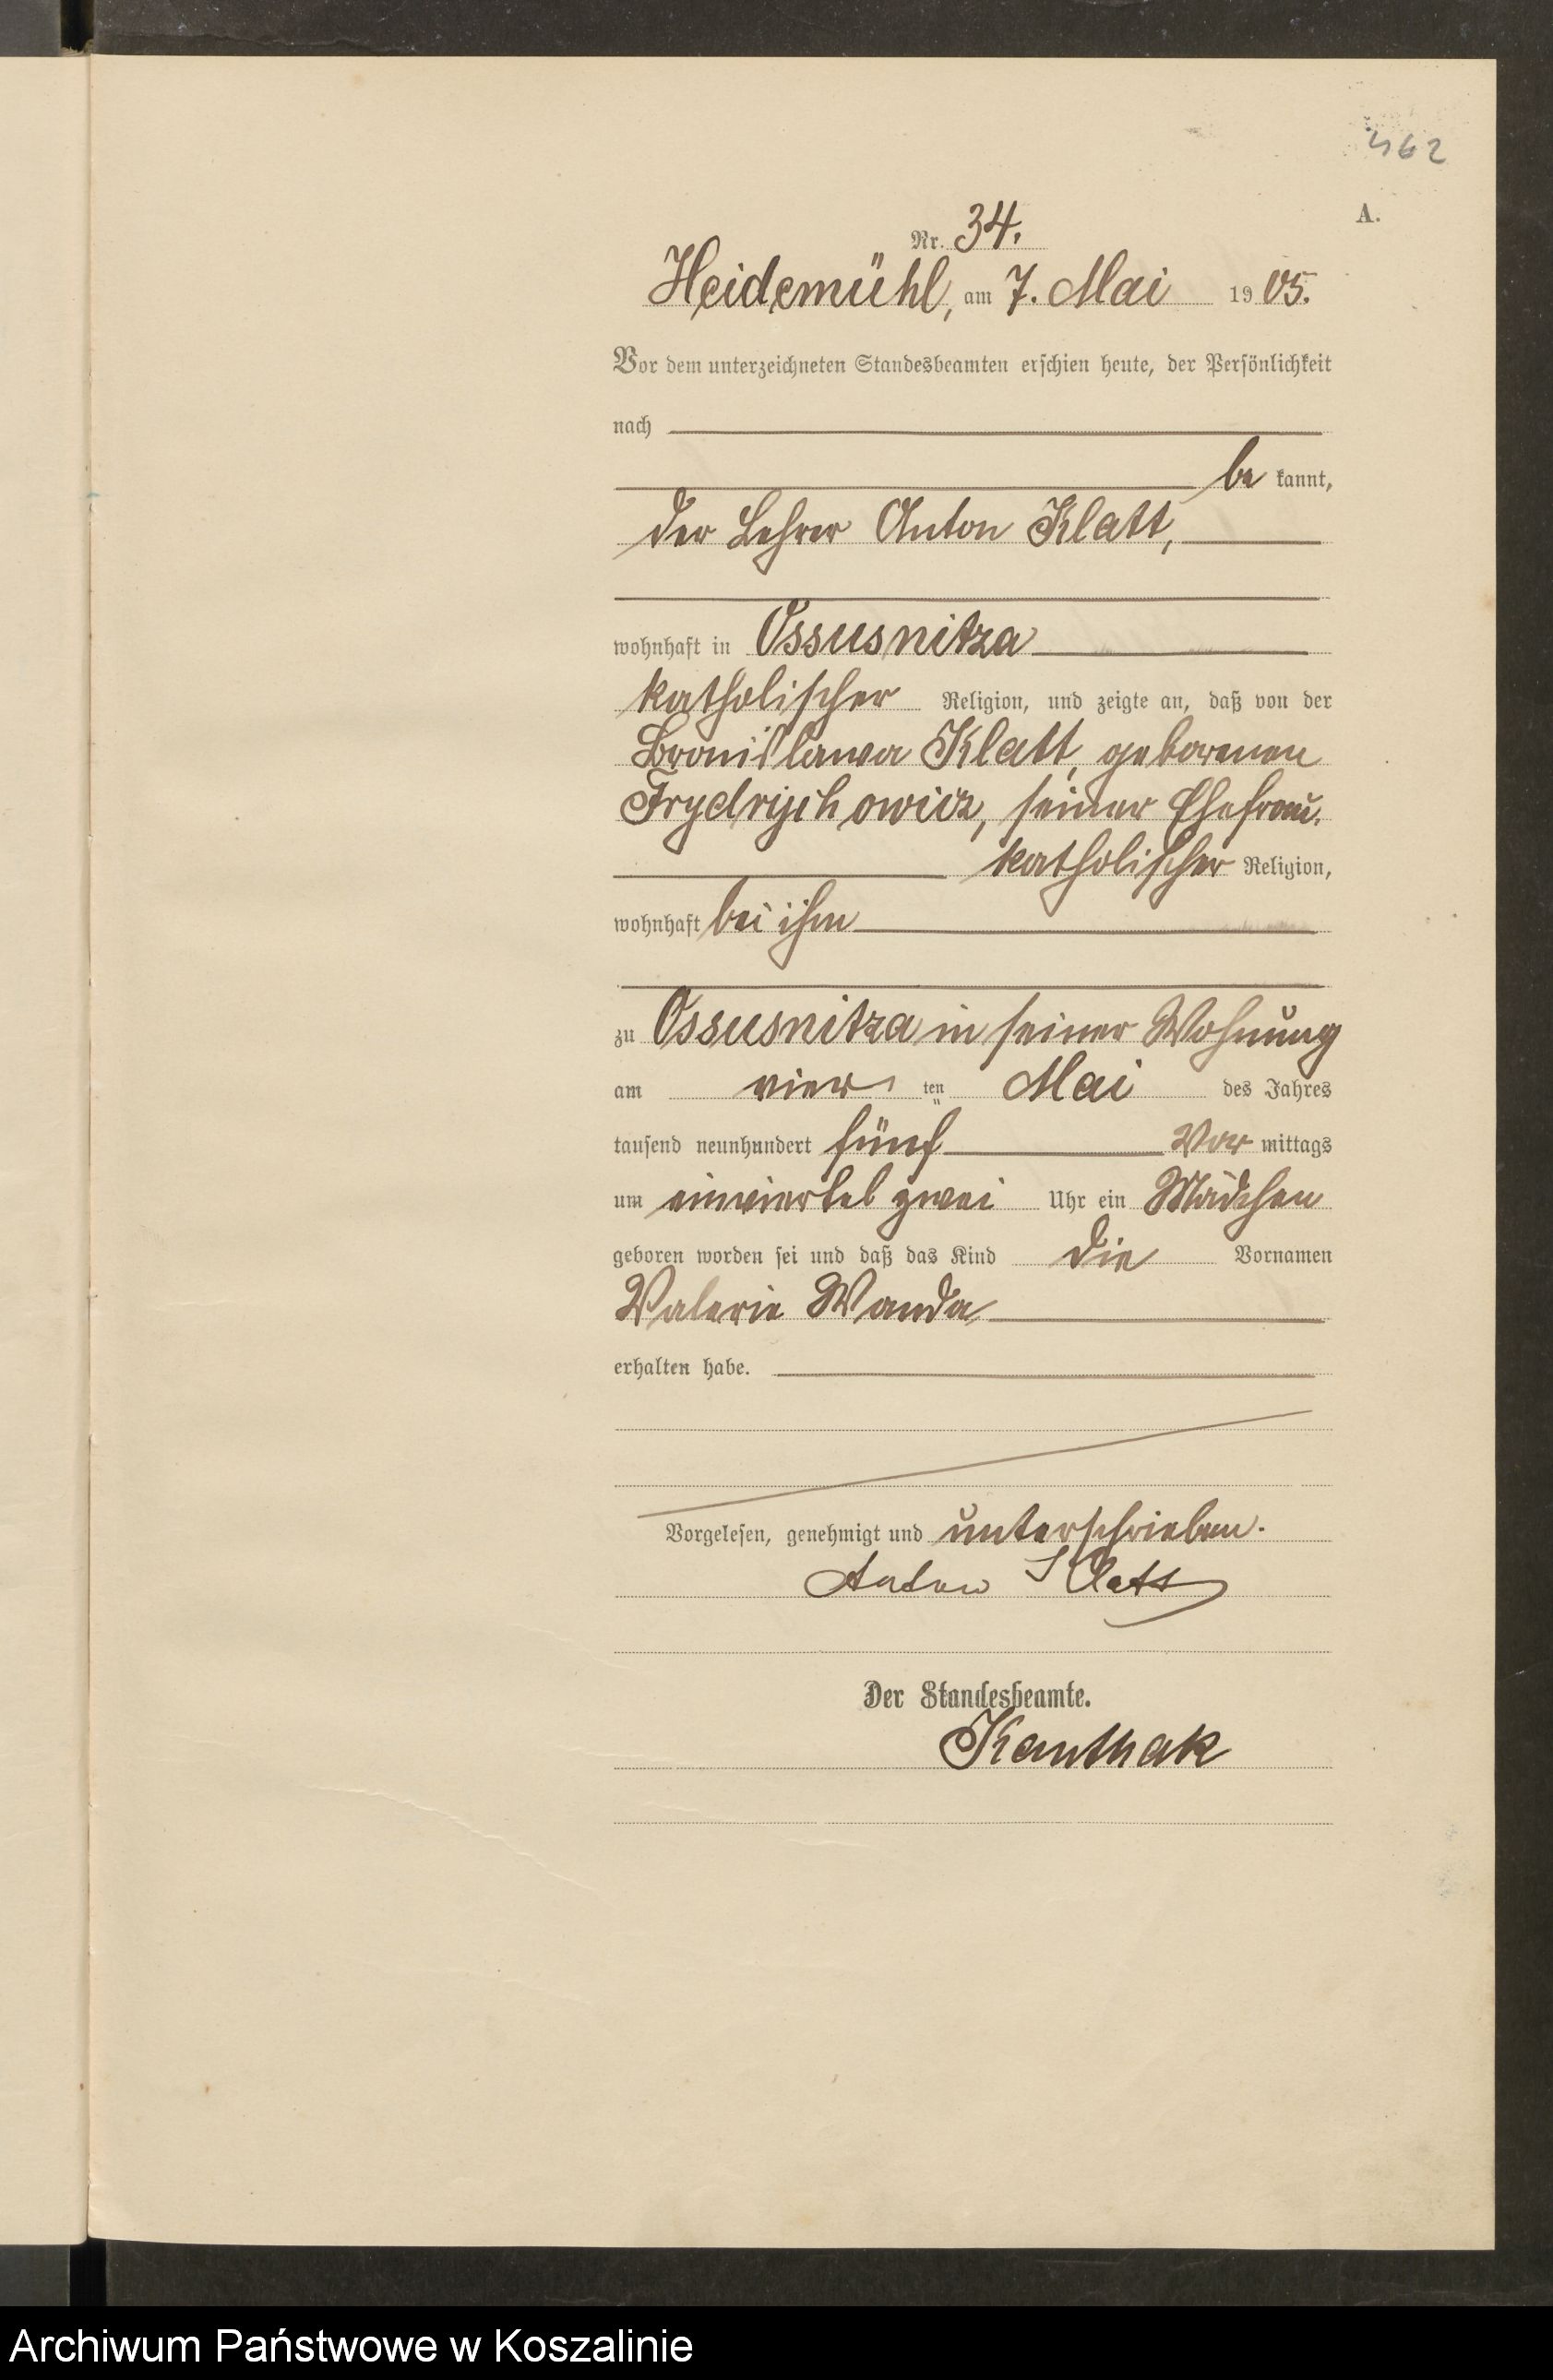 462
A.
Nr. 34.
Heidemühl, am 7. Mai 1905.
Vor dem unterzeichneten Standesbeamten erschien heute, der Persönlichkeit
nach
be kannt,
der Lehrer Anton Klatt,
wohnhaft in Ossusnitza
katholischer Religion, und zeigte an, daß von der
Bronislawa Klatt, geborenen
Frydrychowicz, seiner Ehefrau.
katholischer Religion,
wohnhaft bei ihm
zu Ossusnitza in seiner Wohnung
am vier ten Mai des Jahres
tausend neunhundert fünf Vor mittags
um einviertel zwei Uhr ein Mädchen
geboren worden sei und daß das Kind die Vornamen
Valerie Wanda
erhalten habe.
Vorgelesen, genehmigt und unterschrieben.
Anton Klatt
Der Standesbeamte.
Kanthak
Archiwum Państwowe w Koszalinie